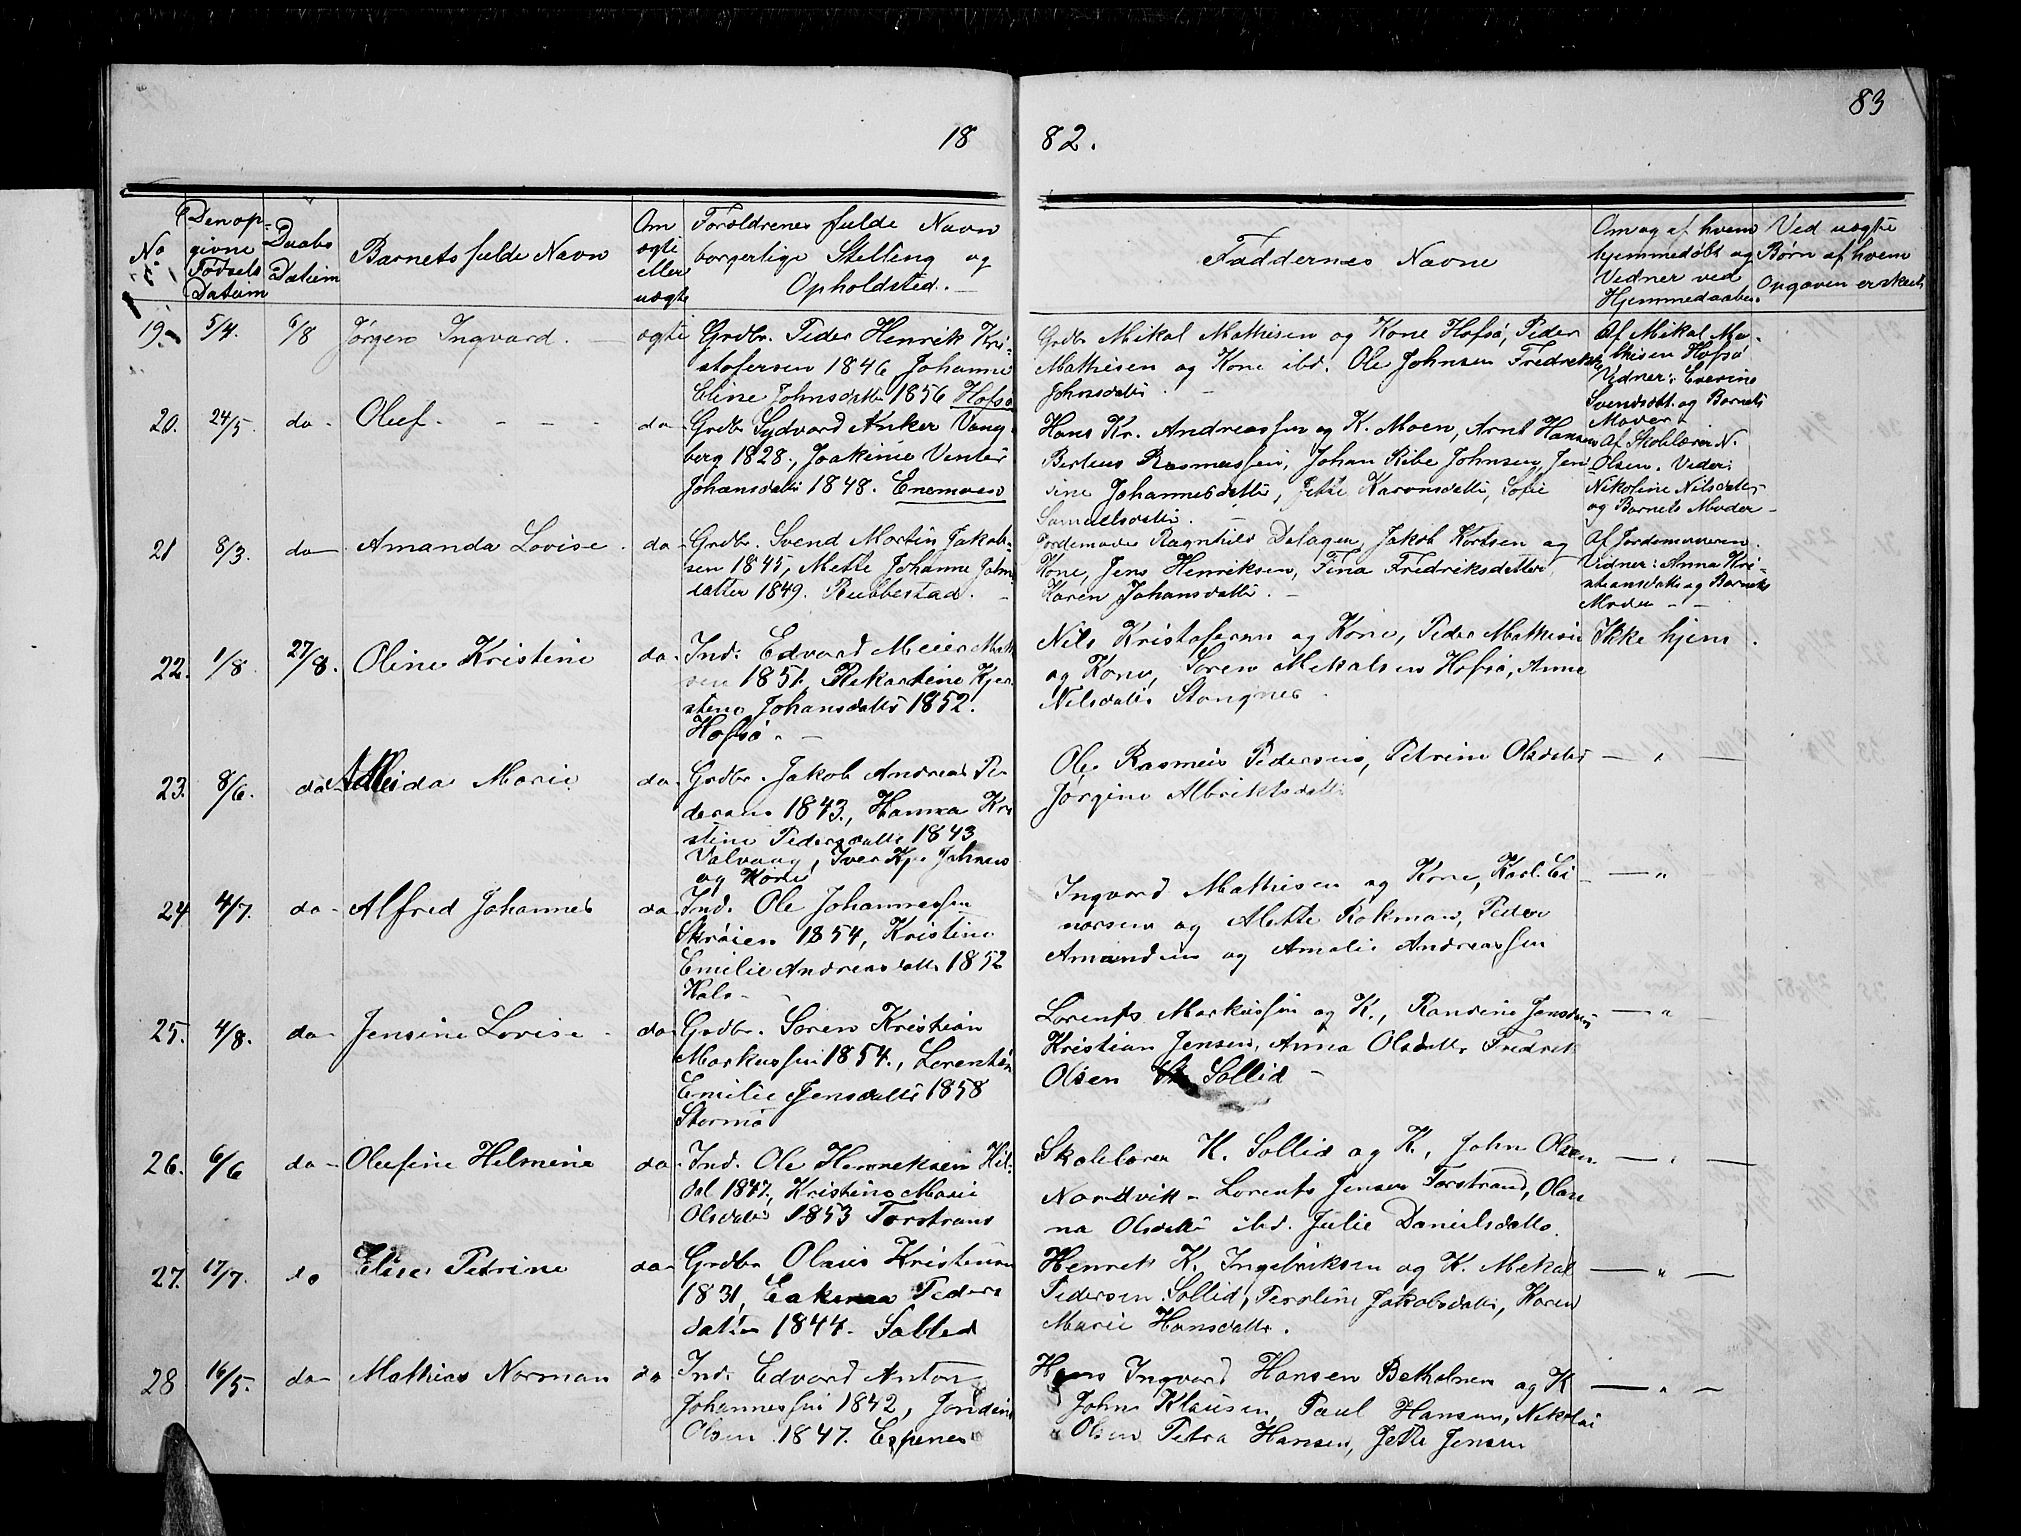 83
18 82.
No
Den op-
givne
Fødsels
Datum
Daabs
Datum
Barnets fulde Navn
Om
ægte
eller
uægte
Forældrenes fulde Navn
borgerlige Stilling og
Opholdsted.
Faddernes Navne
Om og af hvem
hjemmedøbt og
Vidner ved
Hjemmedaaben.
Ved uægte
Børn af hvem
Opgaven er skeet
19. 5/4. 6/8 Jørgen Ingvard. ægte
Grdbr. Peder Henrik Kri-
stofersen 1846, Johanne
Eline Johnsdatter 1856 Hofsø
Grdbr Mikal Mathisen og Kone Hofsø, Peder
Mathisen og Kone ibd. Ole Johnsen Fredrikke
Johnsdatter.
Af Mikal Ma-
thisen Hofsø
Vidner: Everine
Svendsdt. og Barnets
Moder
20. 24/5. do- Oluf. - - - do-
Grdbr Sydvard Anker Vang-
berg 1828., Joakime Venter
Johansdatter 1848. Enemoen
Hans Kr. Andreassen og K. Moen, Arnt Hansen
Berteus Rasmussen, Johan Ribe Johnsen, Jen
sine Johannesdatter, Jette Karonsdatter, Sofie
Samuelsdatter.
Af Skolelærer N.
Olsen. Vidner:
Nikoline Nilsdatter
og Barnets Moder -
21 8/3. do- Amanda Lovise. do-
Grdbr. Svend Martin Jakob-
sen 1845, Mette Johanne John
datter 1849. Rubbestad.
Jordemoder Ragnhild Dalagen, Jakob Kortsen og
Kone, Jens Henriksen, Fina Fredriksdatter
Karen Johansdatter. -
Af Jordemoderen.
Vidner: Anna Kri-
stiansdatter og Barnets
Moder - -
22. 1/8. 27/8. Oline Kristine do-
Ind. Edvard Meier Matt
sen 1851. Rikartine Kjer
stine Johansdatter 1852.
Hofsø. -
Nils Kristofersen og Kone, Peder Mathisen
og Kone, Søren Mikalsen Hofsø, Anne
Nilsdatter Stongnes.
Ikke hjem.
23. 8/6. do- Marie do-
Grdbr. Jakob Andreas Pe-
dersen 1843., Hanna Kri
stine Pedersdatter 1843
Valvaag, Iver Kr. Johnsen
og Kone
Ole Rasmus Pedersen, Petrine Olsdatter
Jørgine Albriktsdatter
— " —
24 4/7. do- Alfred Johannes do-
Ind. Ole Johannessen
Skrøien 1854, Kristine
Emilie Andreasdatter 1852
Kals -
Ingvard Mathisen og Kone, Karl Ei-
narsen og Alette Rokman, Peder
Amundsen og Amalie Andreassen
— "
25. 4/8. do- Jensine Lovise - do-
Grdbr. Søren Kristian
Markussen 1854., Lorentine
Emilie Jensdatter 1858
Stormo
Lorents Markussen og K., Randine Jensdatter
Kristian Jensen, Anna Olsdatter Fredrik
Olsen Sollid -
— " —
26. 6/6 do- Olufine Helmine do-
Ind. Ole Henriksen Hil-
dal 1847, Kristine Marie
Olsdatter 1853 Forstrand
Skolelærer K. Sollid og K., John Olsen
Nordvik - Lorents Jensen Forstrand, Olau
na Olsdatter ibd. Julie Danielsdatter.
— " —
27. 17/7. do Elise Petrine do-
Grdbr Olaus Kristensen
1831, Peders
datter 1844. Solted
Henrik K. Ingebriksen og K. Mikal
Pedersen Sollid, Peroline Jakobsdatter, Karen
Marie Hansdatter.
— " —
28 16/5. do- Mathias Norman do
Ind. Edvard Anton
Johannessen 1842, Jordine
Olsen 1847. Espenes
Hans Ingvard Hansen Betholmen og K
John Klausen, Paul Hansen, Nikolai
Olsen Petra Hansen, Jette Jensen
— " —